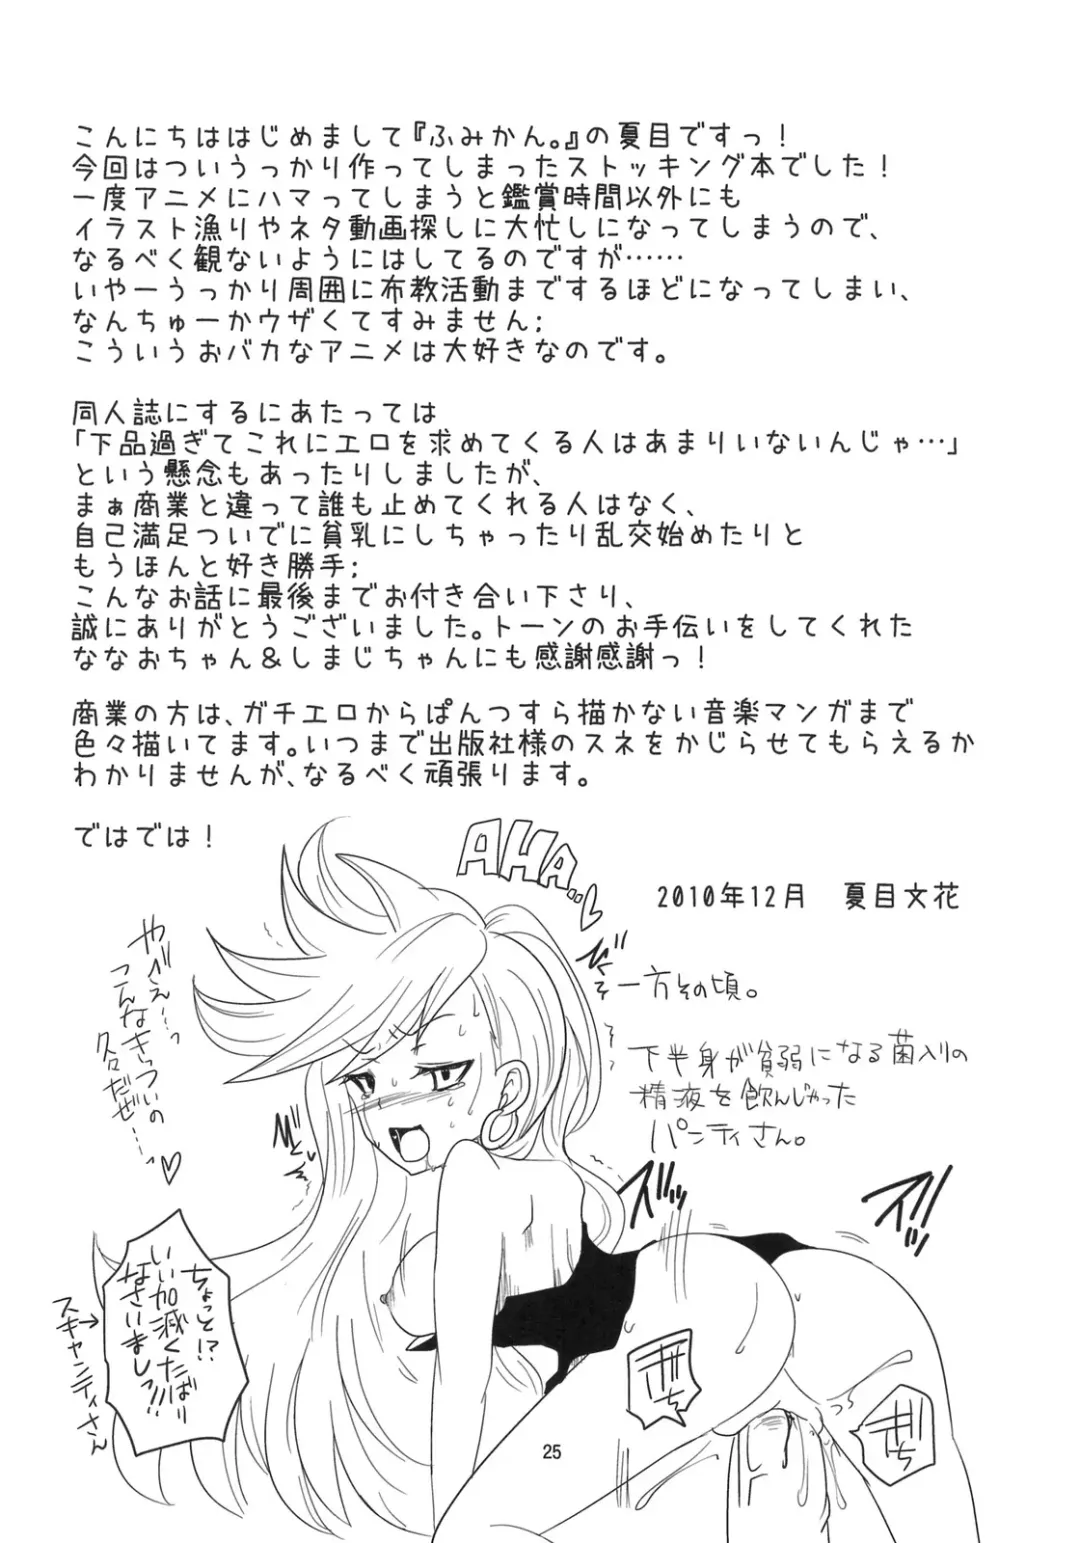 こんにちははじめまして『ふみかん。』の夏目ですっ！
今回はついうっかり作ってしまったストッキング本でした！
一度アニメにハマってしまうと鑑賞時間以外にも
イラスト漁りやネタ動画探しに大忙しになってしまうので、
なるべく観ないようにはしてるのですが……
いやーうっかり周囲に布教活動までするほどになってしまい、
なんちゅーかウザくてすみません;
こういうおバカなアニメは大好きなのです。
同人誌にするにあたっては
「下品過ぎてこれにエロを求めてくる人はあまりいないんじゃ…」
という懸念もあったりしましたが、
まぁ商業と違って誰も止めてくれる人はなく、
自己満足ついでに貧乳にしちゃったり乱交始めたりと
もうほんと好き勝手;
こんなお話に最後までお付き合い下さり、
誠にありがとうございました。トーンのお手伝いをしてくれた
ななおちゃん＆しまじちゃんにも感謝感謝っ！
商業の方は、ガチエロからぱんつすら描かない音楽マンガまで
色々描いてます。いつまで出版社様のスネをかじらせてもらえるか
わかりませんが、なるべく頑張ります。
ではでは！
2010年12月　夏目文花
AHA..♡
やべぇ…っ
こんなきっついの
久々だぜ…♡
一方その頃。
下半身が貧弱になる菌入りの
精液を飲んじゃった
パンティさん。
ちょっと!?
いい加減くたばり
なさいましっ!!!
スキャンティさん
ズッ
25